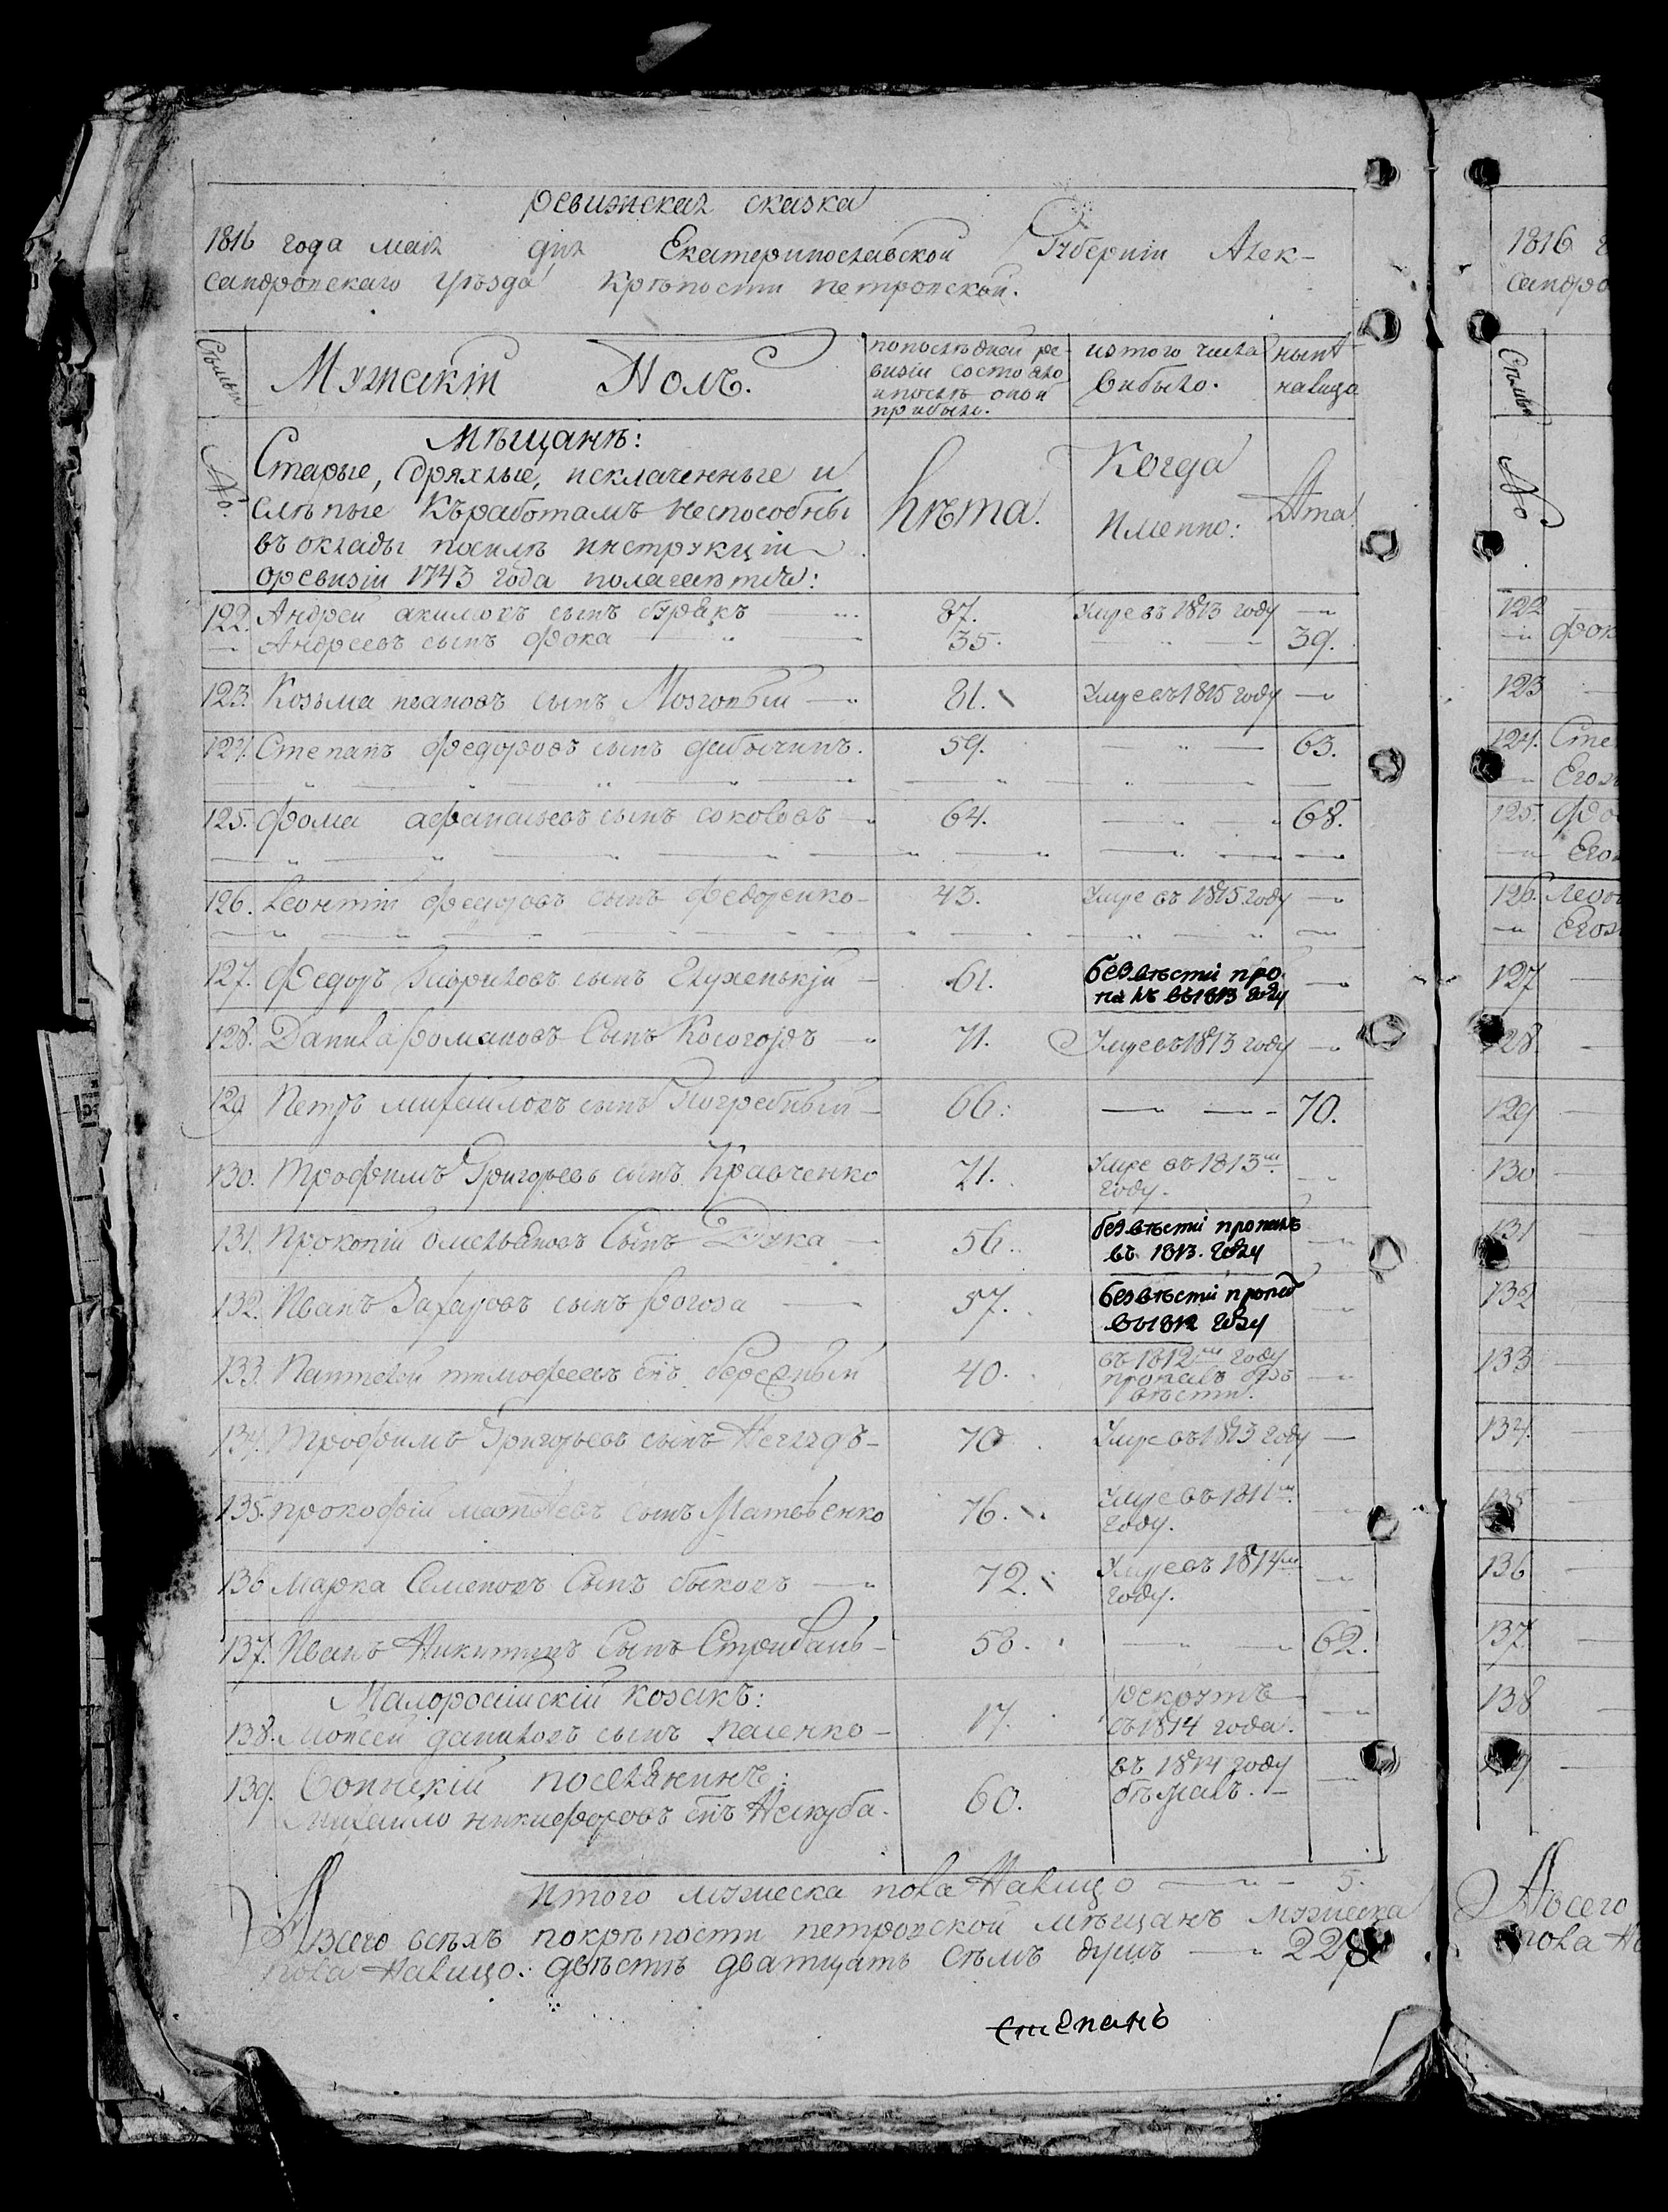 ревижская сказка
1816 года маія дня Екатеринославской Губерніи Алек-
сандровскаго Уѣзда Крѣпости петровской.
Семьи
Мужескій Полъ.
попослѣдней ре-
визіи состояло
ипослѣ оной
прибыло.
изтого числа
выбыло.
нынѣ
налицо
№.
Мѣщанѣ:
Старые, дряхлые, исклаченные и
слѣпые Къработамъ неспособны
въ оклады посилѣ инструкціи
оревизіи 1743 года
Лѣта.
Когда
Имеппо:
Лѣта
122. Андрей акимовъ сынъ буракъ 87. Умре въ 1813 году
Андреевъ сынъ фока 35. 39.
123. Козьма ивановъ сынъ Мозговый 81. Умре въ 1815 году
124. Степанъ федоровъ сынъ 59. 63.
125. Фома афанасьевъ сынъ соколовъ 64. 68.
126. Леонтій федоровъ сынъ федоренко 43. Умре въ 1815 году
127. Федоръ Гавриловъ сынъ Глухенькій 61. безвѣсти про-
палъ въ 1813 году
128. Данила романовъ Сынъ Косогоръ 71. Умре въ 1813 году
129 Петръ михайловъ сынъ Погребный 66. 70.
130. Трофимъ Григорьевъ сынъ Кравченко 71. Умре въ 1813м
году.
131. Прокопій омельяновъ Сынъ Дука 56. безвѣсти пропалъ
въ 1813. году
132. Иванъ Захаровъ сынъ рогоза 57. безвѣсти пропал
въ 1812 году
133. Пантелей тимофеевъ снъ бережный 40. въ 1812м году
пропалъ безъ
вѣсти.
134. Трофимъ Григорьевъ сынъ 70 Умре въ 1813 году
135. прокофій матвѣевъ сынъ Матвѣенко 76. Умре въ 1811м
году.
136 марка Семеновъ Сынъ быковъ 72. Умре въ 1814м
году.
137. Иванъ Никитинъ Сынъ 58. 62.
Малоросійскій козакъ:
138. Моисей даниловъ сынъ 17. рекрутъ
въ 1814 года.
139. Воинскій поселянинъ:
михайло никифоровъ снъ 60. въ 1814 году
бѣжалъ.
Итого мужеска пола Налицо 5.
Авсего всѣхъ покрѣпости петровской мѣщанъ мужеска
пола Налицо: двѣсти дватцать семъ душъ 228
степанъ
1816 г
сандро
Семьи
№
122
фок
123
124. Сте
Егож
125. Фо
Его
126. Леон
Егож
127
128
129
130
131
132
133
134
135
136
137
138
139
Авсего
пола На